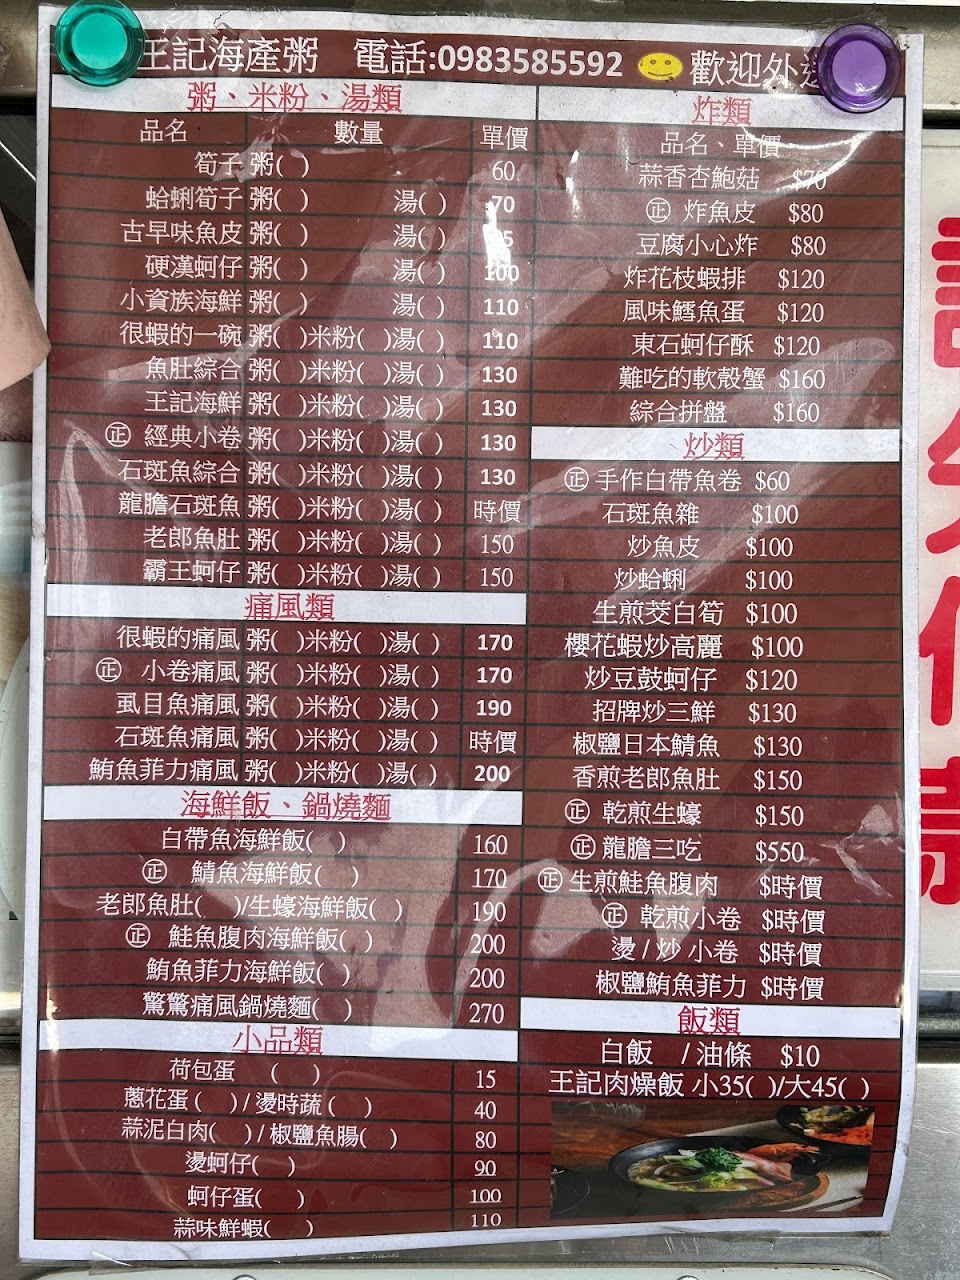 王記海產粥 電話:0983585592 歡迎外送
粥、米粉、湯類
品名 數量 單價
筍子 粥( ) 60
蛤蜊筍子 粥( ) 湯( ) 70
古早味魚皮 粥( ) 湯( )
硬漢蚵仔 粥( ) 湯( ) 100
小資族海鮮 粥( ) 湯( ) 110
很蝦的一碗 粥( )米粉( )湯( ) 110
魚肚綜合 粥( )米粉( )湯( ) 130
王記海鮮 粥( )米粉( )湯( ) 130
㊣ 經典小卷 粥( )米粉( )湯( ) 130
石斑魚綜合 粥( )米粉( )湯( ) 130
龍膽石斑魚 粥( )米粉( )湯( ) 時價
老郎魚肚 粥( )米粉( )湯( ) 150
霸王蚵仔 粥( )米粉( )湯( ) 150
痛風類
很蝦的痛風 粥( )米粉( )湯( ) 170
㊣ 小卷痛風 粥( )米粉( )湯( ) 170
虱目魚痛風 粥( )米粉( )湯( ) 190
石斑魚痛風 粥( )米粉( )湯( ) 時價
鮪魚菲力痛風 粥( )米粉( )湯( ) 200
海鮮飯、鍋燒麵
白帶魚海鮮飯( ) 160
㊣ 鯖魚海鮮飯( ) 170
老郎魚肚( )/生蠔海鮮飯( ) 190
㊣ 鮭魚腹肉海鮮飯( ) 200
鮪魚菲力海鮮飯( ) 200
驚驚痛風鍋燒麵( ) 270
小品類
荷包蛋 ( ) 15
蔥花蛋 ( ) / 燙時蔬 ( ) 40
蒜泥白肉( ) / 椒鹽魚腸( ) 80
燙蚵仔( ) 90
蚵仔蛋( ) 100
蒜味鮮蝦( ) 110
炸類
品名、單價
蒜香杏鮑菇 $70
㊣ 炸魚皮 $80
豆腐小心炸 $80
炸花枝蝦排 $120
風味鱈魚蛋 $120
東石蚵仔酥 $120
難吃的軟殼蟹 $160
綜合拼盤 $160
炒類
㊣ 手作白帶魚卷 $60
石斑魚雜 $100
炒魚皮 $100
炒蛤蜊 $100
生煎茭白筍 $100
櫻花蝦炒高麗 $100
炒豆鼓蚵仔 $120
招牌炒三鮮 $130
椒鹽日本鯖魚 $130
香煎老郎魚肚 $150
㊣ 乾煎生蠔 $150
㊣ 龍膽三吃 $550
㊣ 生煎鮭魚腹肉 $時價
㊣ 乾煎小卷 $時價
燙 / 炒 小卷 $時價
椒鹽鮪魚菲力 $時價
飯類
白飯 / 油條 $10
王記肉燥飯 小35( )/大45( )